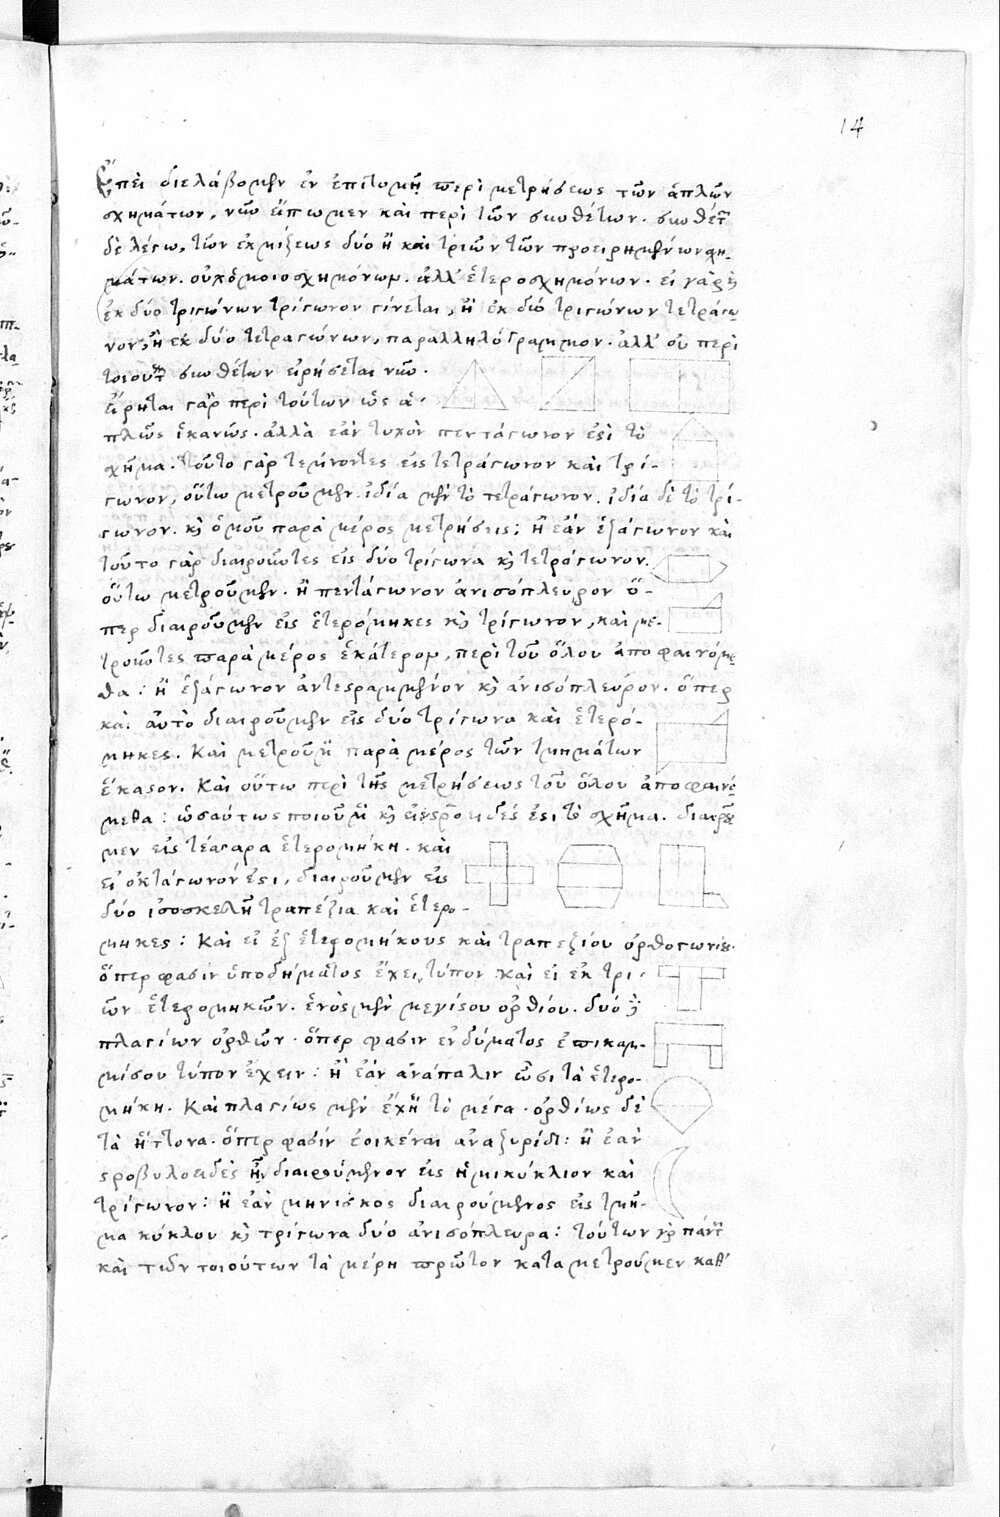 14
Ἐπεὶ διελάβομεν ἐν ἐπιτομῇ περὶ μετρήσεως τῶν ἁπλῶν
σχημάτων, νῦν εἴπωμεν καὶ περὶ τῶν συνθέτων. συνθέτ
δὲ λέγω, τῶν ἐκ μίξεως δύο ἢ καὶ τριῶν τῶν προειρημένων σχη-
μάτων. οὐχ ὁμοιοσχημόνων. ἀλλ' ἑτεροσχημόνων. εἰ γὰρ
ἐκ δύο τριγώνων τρίγωνον γίνεται, ἢ ἐκ δύο τριγώνων τετράγω
νον, ἢ ἐκ δύο τετραγώνων, παραλληλόγραμμον. ἀλλ' οὐ περὶ
τοιούτ συνθέτων εἰρήσεται νῦν.
εἴρηται γὰρ περὶ τούτων ὡς ἁ-
πλῶς ἱκανῶς. ἀλλὰ ἐὰν τυχὸν πεντάγωνον ἐστὶ τὸ
σχῆμα. τοῦτο γὰρ τέμνοντες εἰς τετράγωνον καὶ τρί-
γωνον, οὕτω μετροῦμεν. ἰδία μὲν τὸ τετράγωνον. ἰδία δὲ τὸ τρί-
γωνον. κ ὁμοῦ παρὰ μέρος μετρήσεις: ἢ ἐὰν ἑξάγωνον καὶ
τοῦτο γὰρ διαιροῦντες εἰς δύο τρίγωνα κ τετράγωνον.
οὕτω μετροῦμεν. ἢ πεντάγωνον ἀνισόπλευρον ὅ-
περ διαιροῦμεν εἰς ἑτερόμηκες κ τρίγωνον, καὶ με-
τροῦντες παρὰ μέρος ἑκάτερον, περὶ τοῦ ὅλου ἀποφαινόμε
θα: ἢ ἑξάγωνον ἀντεστραμμένον κ ἀνισόπλευρον. ὅπερ
καὶ αὐτὸ διαιροῦμεν εἰς δύο τρίγωνα καὶ ἑτερό-
μηκες. Καὶ μετροῦμ παρὰ μέρος τῶν τμημάτων
ἕκαστον. Καὶ οὕτω περὶ τῆς μετρήσεως τοῦ ὅλου ἀποφαινό
μεθα: ὡσαύτως ποιοῦμ κ εἰ σταυροειδές ἐστι τὸ σχῆμα. διαιροῦ
μεν εἰς τέσσαρα ἑτερομήκη. καὶ
εἰ ὀκτάγωνόν ἐστι, διαιροῦμεν εἰς
δύο ἰσοσκελῆ τραπέζια καὶ ἑτερο-
μηκες: Καὶ εἰ ἐξ ἑτερομήκους καὶ τραπεζίου ὀρθογωνίου.
ὅπερ φασὶν ὑποδήματος ἔχει τύπον καὶ εἰ ἐκ τρι-
ῶν ἑτερομηκῶν. ἑνὸς μὲν μεγίστου ὀρθίου. δύο δὲ
πλαγίων ὀρθῶν. ὅπερ φασὶν ἐνδύματος ἐπικαμ-
μίσου τύπον ἔχειν: ἢ ἐὰν ἀνάπαλιν ὦσι τὰ ἑτερο-
μήκη. Καὶ πλαγίως μὲν ἔχῃ τὸ μέγα. ὀρθίως δὲ
τὰ ἥττονα. ὅπερ φασὶν ἐοικέναι ἀναξυρίδι: ἢ ἐὰν
στροβυλοειδὲς ἦν διαιρούμενον εἰς ἡμικύκλιον καὶ
τρίγωνον: ἢ ἐὰν μηνίσκος διαιρούμενος εἰς τμῆ-
μα κύκλου κ τρίγωνα δύο ἀνισόπλευρα: τούτων γὰρ πάντ
καὶ τῶν τοιούτων τὰ μέρη πρῶτον καταμετροῦμεν καθ'